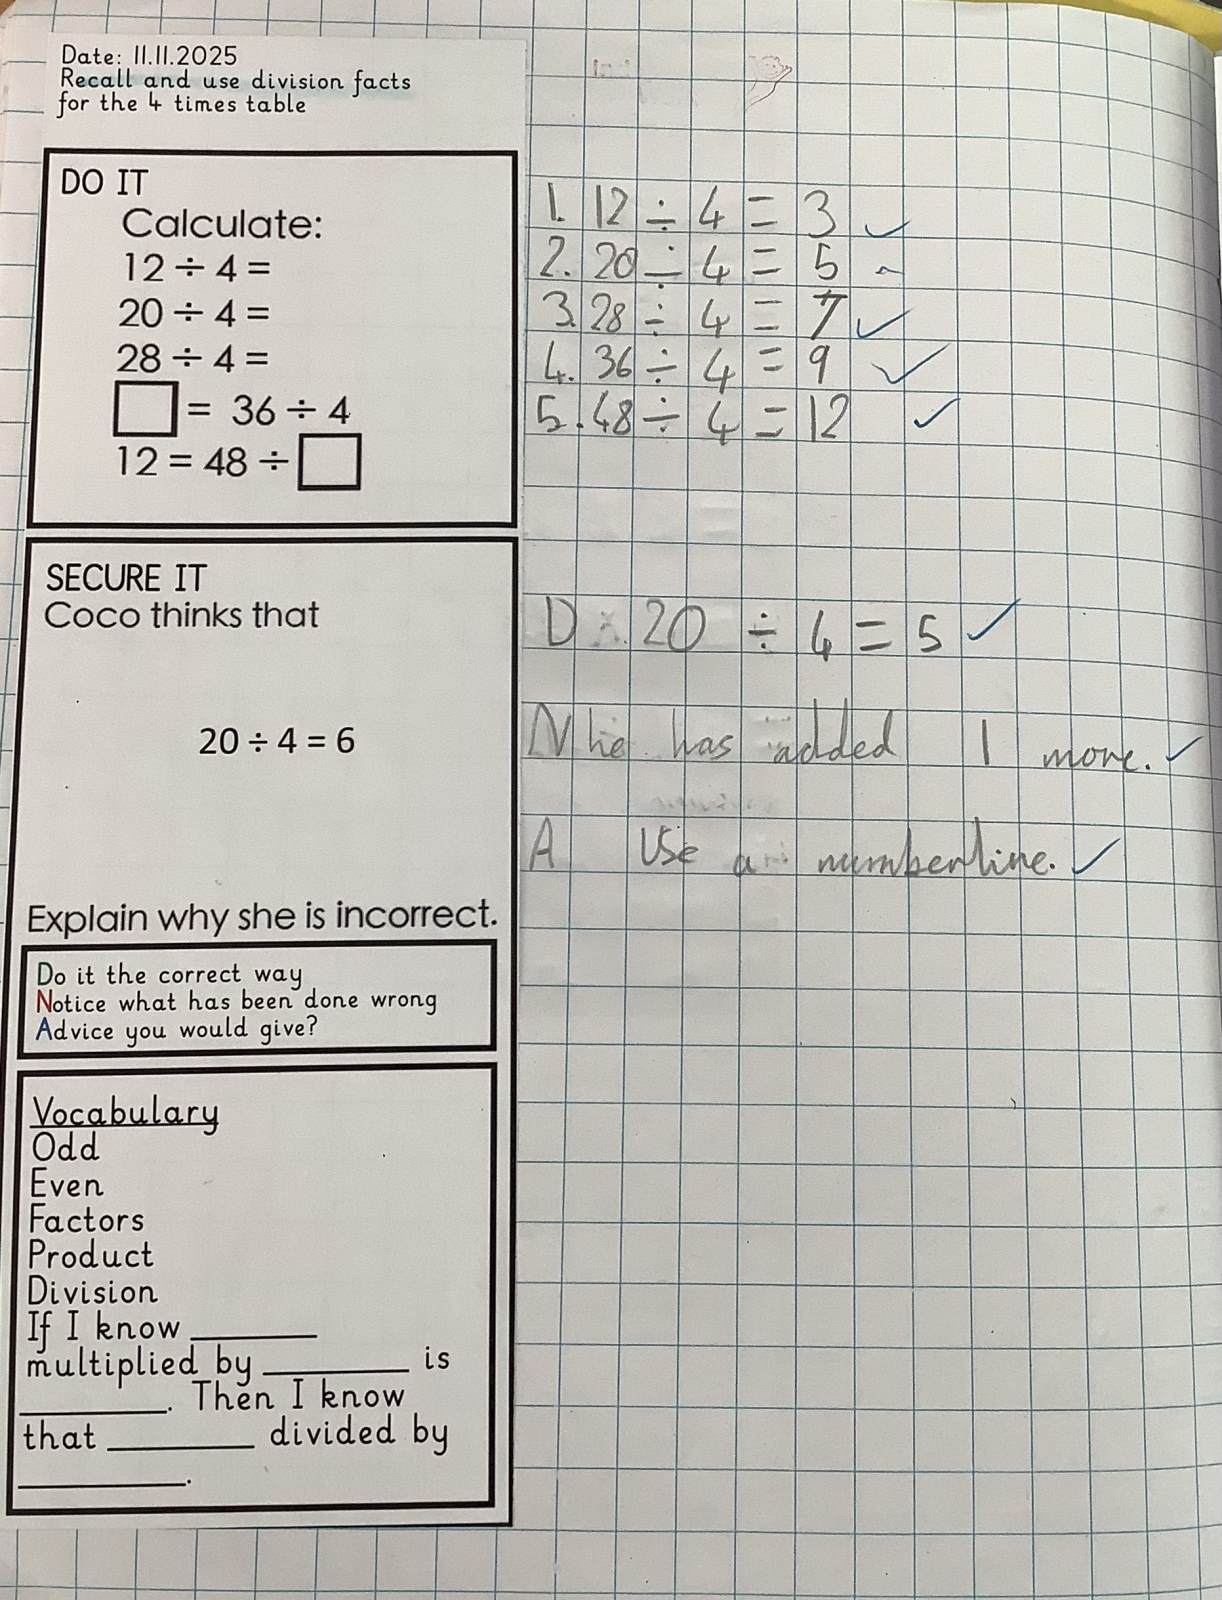 Date: 11.11.2025
Recall and use division facts
for the 4 times table
DO IT
Calculate:
12 ÷ 4 =
20 ÷ 4 =
28 ÷ 4 =
= 36 ÷ 4
12 = 48 ÷
1. 12 ÷ 4 = 3
2. 20 ÷ 4 = 5
3. 28 ÷ 4 = 7
4. 36 ÷ 4 = 9
5. 48 ÷ 4 = 12
SECURE IT
Coco thinks that
20 ÷ 4 = 6
Explain why she is incorrect.
Do it the correct way
Notice what has been done wrong
Advice you would give?
D 20 ÷ 4 = 5
N he has added 1 more.
A Use a numberline.
Vocabulary
Odd
Even
Factors
Product
Division
If I know ______
multiplied by ______ is
______. Then I know
that ______ divided by
______.